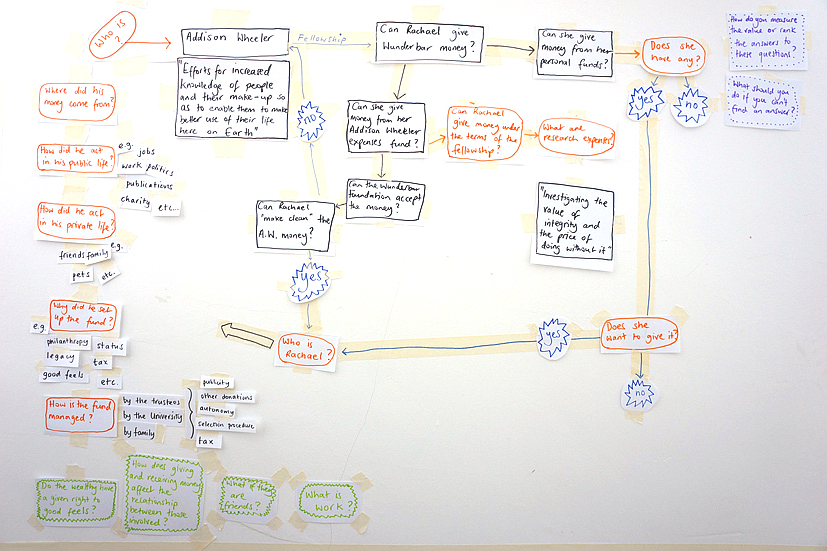 Who is
?
Addison Wheeler
Fellowship
Can Rachael give
Wunderbar money?
Can she give
money from her
personal funds?
Does she
have any?
How do you measure
the value or rank
the answers to
these questions?
"Efforts for increased
knowledge of people
and their make-up so
as to enable them to make
better use of their life
here on Earth"
yes
no
What should you
do if you can't
find an answer?
Where did his
money come from?
no
Can she give
money from her
Addison Wheeler
expenses fund?
Can Rachael
give money under
the terms of the
fellowship?
What are
research expenses?
How did he act
in his public life?
e.g.
jobs
work politics
publications
charity
etc...
Can the Wunderbar
Foundation accept
the money?
"Investigating the
value of
integrity and
the price of
doing without it"
How did he act
in his private life?
e.g.
friends
family
pets
etc.
Can Rachael
"make clean" the
A.W. money?
yes
Why did he set
up the fund?
e.g.
philanthropy
status
legacy
tax
good feels
etc.
Who is
Rachael?
yes
Does she
want to give it?
no
How is the fund
managed?
by the trustees
by the University
by family
publicity
other donations
autonomy
selection procedure
tax
Do the wealthy have
a given right to
good feels?
How does giving
and receiving money
affect the
relationship
between those
involved?
What if they
are
friends?
What is
work?